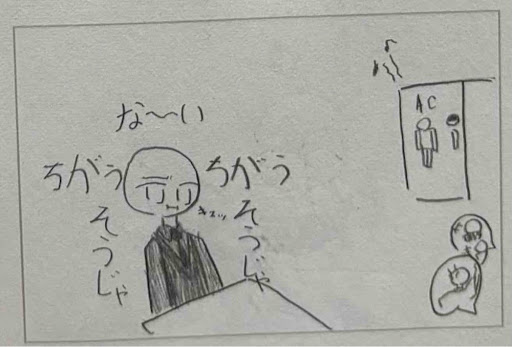 な〜い
ちがう
そうじゃ
ちがう
そうじゃ
キュッ
AC